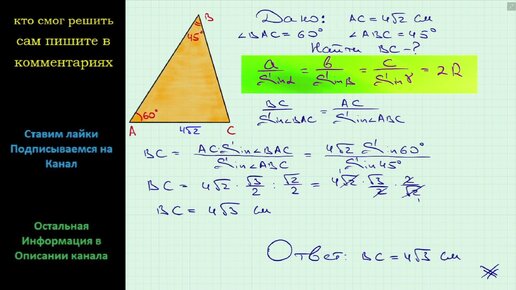 кто смог решить
сам пишите в
комментариях
Ставим лайки
Подписываемся на
Канал
Остальная
Информация в
Описании канала
B
45°
60°
A
4√2
C
Дано: AC = 4√2 см
∠BAC = 60° ∠ABC = 45°
Найти BC - ?
a/Sinα = b/Sinβ = c/Sinγ = 2R
BC/Sin∠BAC = AC/Sin∠ABC
BC = AC Sin∠BAC/Sin∠ABC = 4√2 Sin60°/Sin45°
BC = 4√2 · √3/2 : √2/2 = 4√2 · √3/2 · 2/√2
BC = 4√3 см
Ответ: BC = 4√3 см